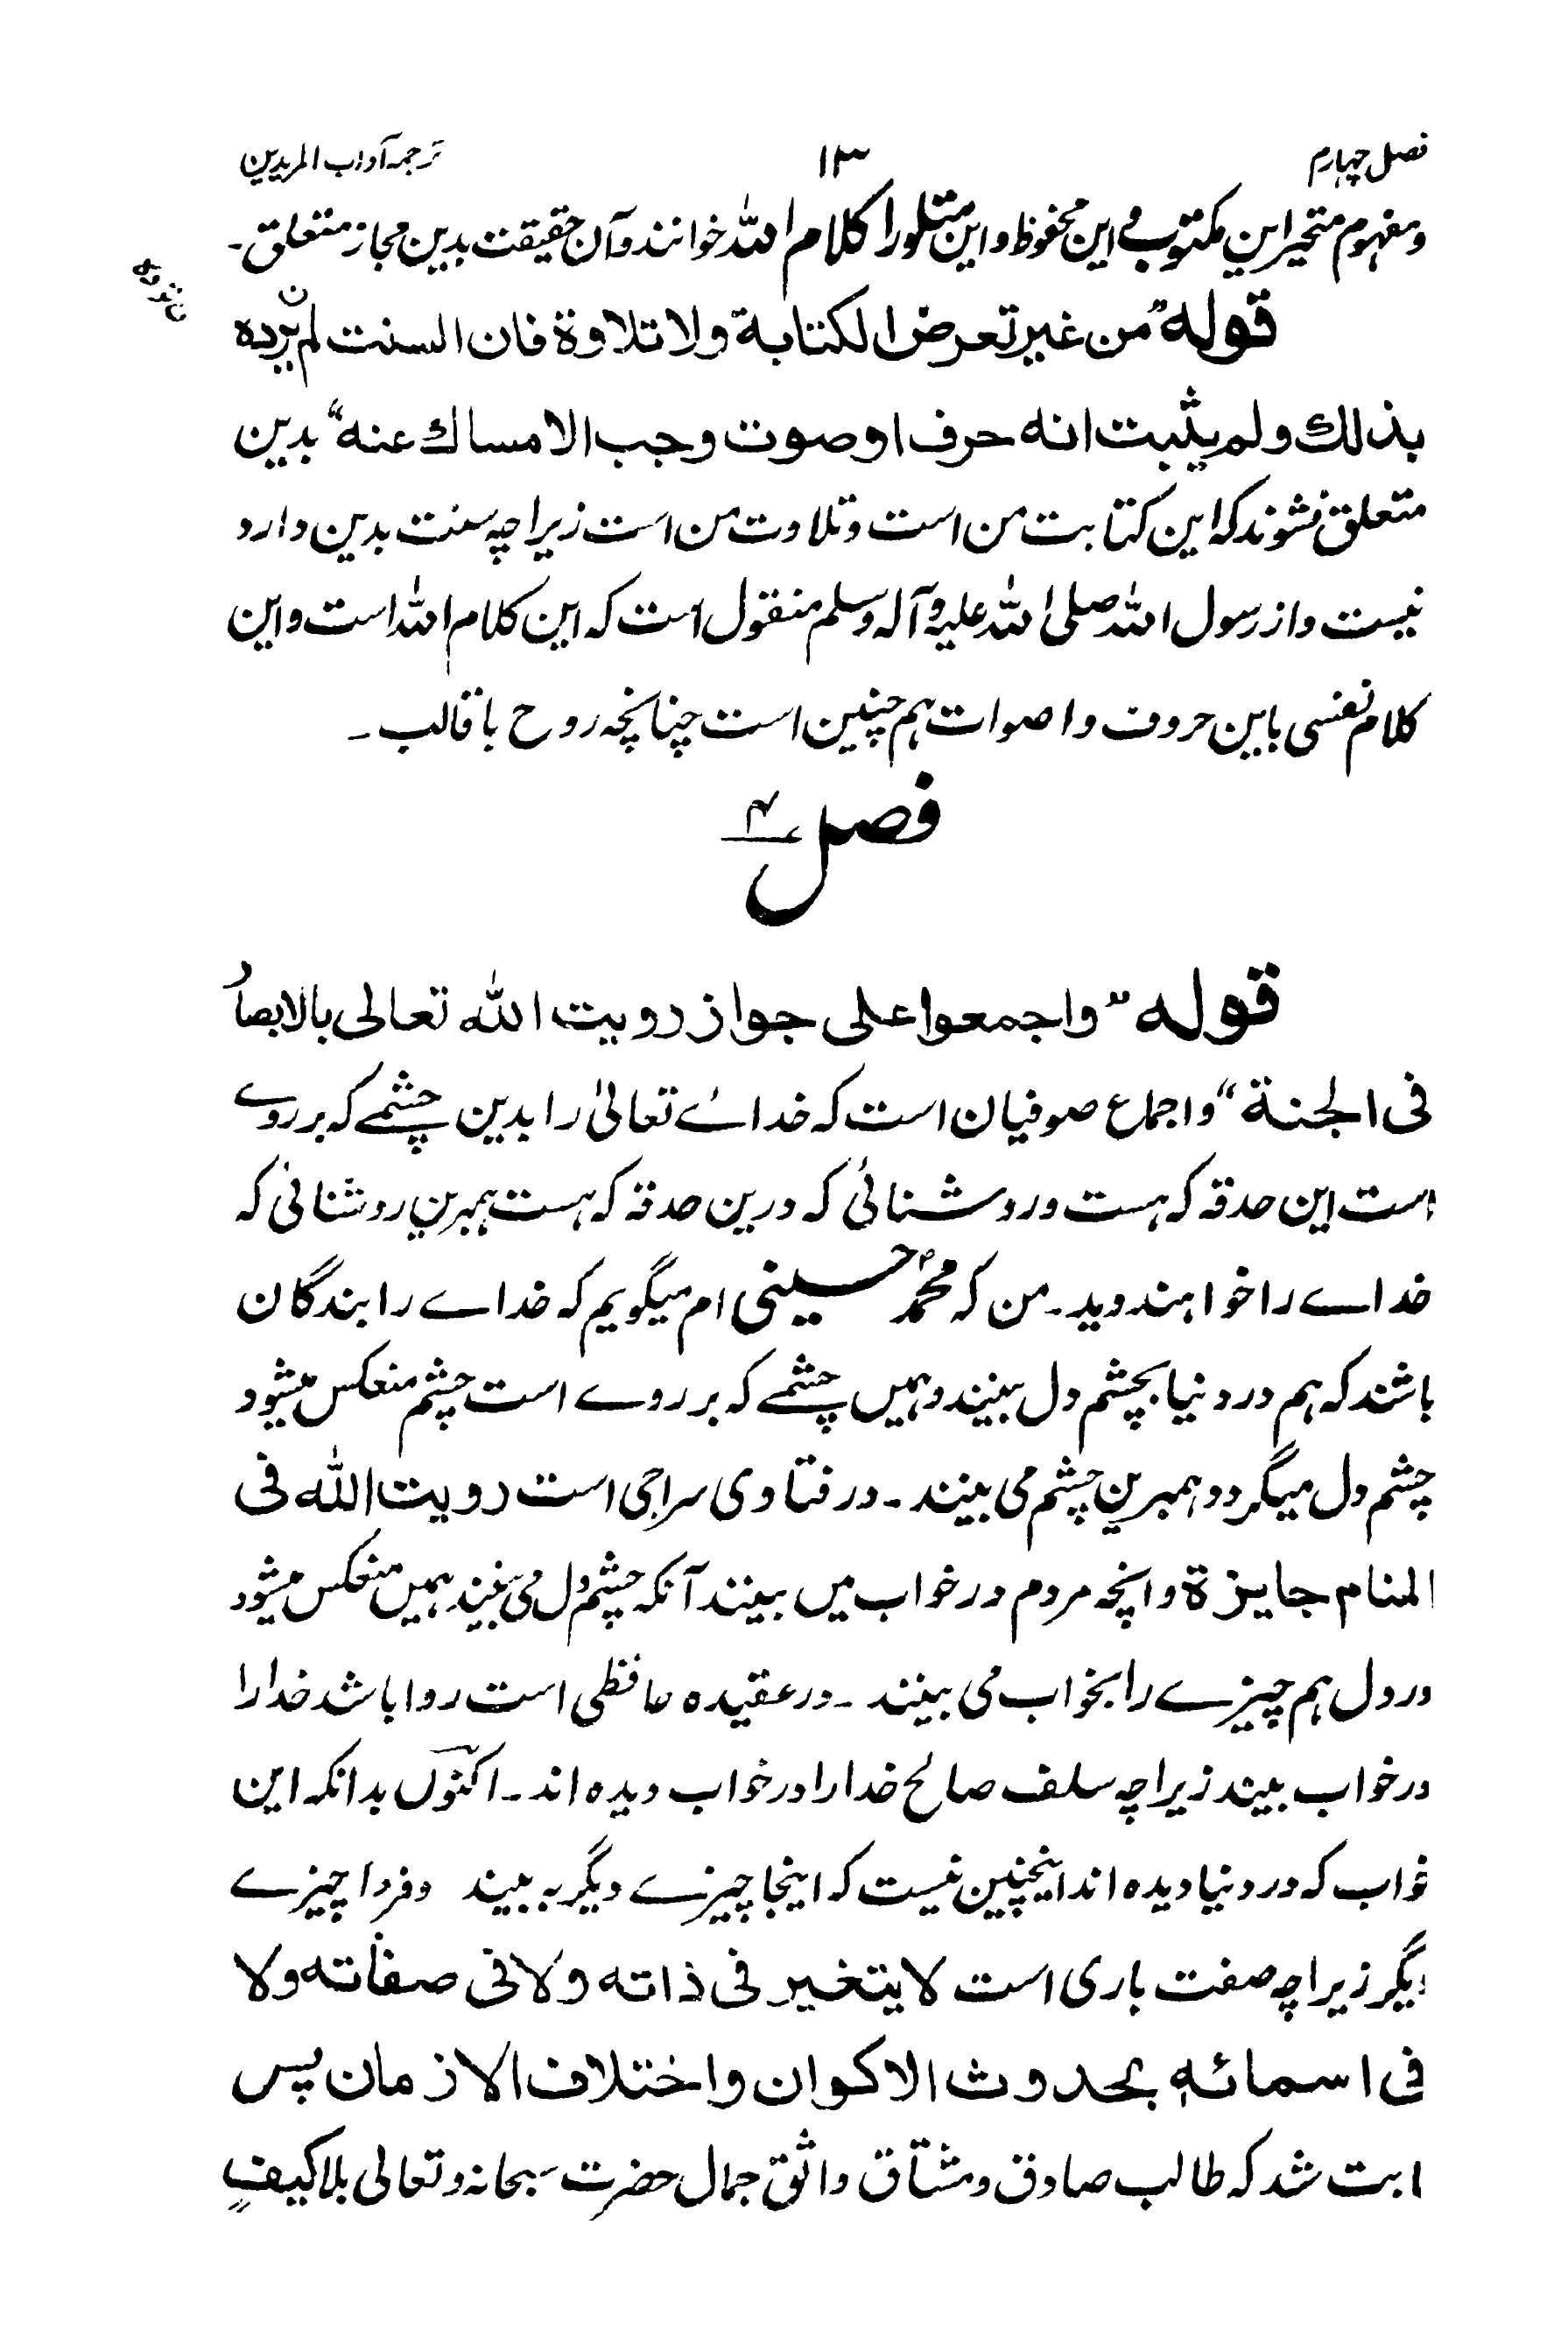 فصل چہارم ۱۳ ترجمہ آداب المریدین
ومفہوم متحیر این مکتوب و این محفوظ و این متلو را کلام اللہ خوانند و آن حقیقت بدین مجاز متعلق۔
قولہ ”من غیر تعرض الکتابة ولا تلاوة فان السنت لم تردہ
بذلك ولم یثبت انه حرف او صوت وجب الامساك عنه“ بدین
متعلق نشوند کہ این کتابت من است و تلاوت من است زیراچہ سنت بدین وارد
نیست و از رسول اللہ صلی اللہ علیہ و آلہ وسلم منقول است کہ این کلام اللہ است و این
کلام نفسی باین حروف و اصوات ہم چنین است چنانچہ روح با قالب۔
فصل ۴
قولہ ”واجمعوا علی جواز رویت اللہ تعالی بالابصار
فی الجنة“ و اجماع صوفیان است کہ خدائے تعالیٰ را بدین چشمے کہ بر روے
است این حدقہ کہ ہست و روشنائی کہ درین حدقہ کہ ہست ہمبرین روشنائی کہ
خداے را خواہند دید۔ من کہ محمد حسینی ام میگویم کہ خداے را بندگان
باشند کہ ہم در دنیا بچشم دل بینند و ہمیں چشمے کہ بر روے است چشم منعکس میشود
چشم دل میگردد ہمبرین چشم می بینند۔ در فتاوی سراجی است رویت اللہ فی
المنام جایزة و انچہ مردم در خواب میں بینند آنکہ چشم دل می بیند ہمیں منعکس میشود
در دل ہم چیزے را بخواب می بینند۔ در عقیدہ حافظی است روا باشد خدا را
در خواب بیند زیراچہ سلف صالح خدا را در خواب دیدہ اند۔ اکنوں بدانکہ این
خواب کہ در دنیا دیدہ اند اینچنین نیست کہ اینجا چیزے دیگر بہ بیند و فردا چیزے
دیگر زیراچہ صفت باری است لا یتغیر فی ذاته ولا فی صفاته ولا
فی اسمائه بحدوث الاکوان واختلاف الازمان پس
ابت شد کہ طالب صادق و مشتاق واثق جمال حضرت سبحانہ و تعالی بلا کیفٍ